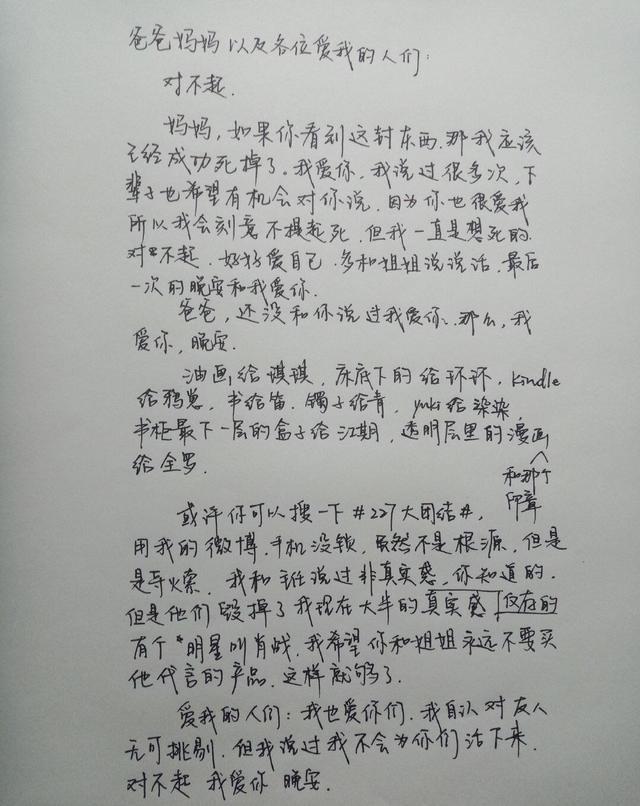 爸爸妈妈以及各位爱我的人们:
对不起.
妈妈,如果你看到这封东西.那我应该
已经成功死掉了。我爱你.我说过很多次,下
辈子也希望有机会对你说.因为你也很爱我
所以我会刻意不提起死.但我一直是想死的.
对不起.好好爱自己.多和姐姐说说话.最后
一次的晚安和我爱你.
爸爸,还没和你说过我爱你.那么,我
爱你,晚安.
油画给琪琪,床底下的给环环.kindle
给鸦崽,书给笛.镯子给青,yuki给染染,
书柜最下一层的盒子给江期,透明层里的漫画
和那个印章
给全罗.
或许你可以搜一下#227大团结#,
用我的微博.手机没锁,虽然不是根源,但是
是导火索.我和主任说过非真实感,你知道的.
但是他们毁掉了我现在大半的真实感 仅存的
有个*明星叫肖战,我希望你和姐姐永远不要买
他代言的产品.这样就够了.
爱我的人们:我也爱你们.我自认对友人
无可挑剔.但我说过我不会为你们活下来.
对不起 我爱你 晚安.